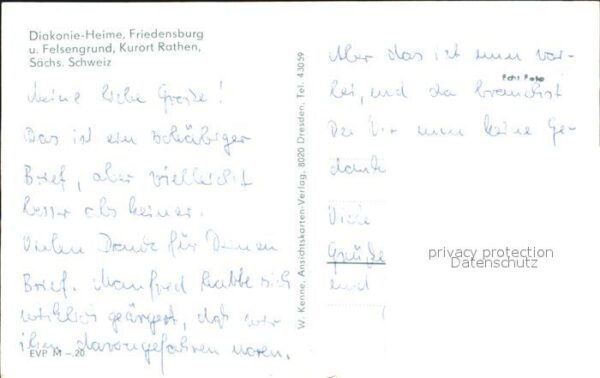 Diakonie-Heime, Friedensburg
u. Felsengrund, Kurort Rathen,
Sächs. Schweiz
Meine liebe Große!
Das ist ein schäbiger
Brief, aber vielleicht
besser als keiner.
Vielen Dank für Deinen
Brief. Manfred hatte sich
wirklich geärgert, daß wir
ihm davongefahren waren.
EVP M –.20
W. Kenne, Ansichtskarten-Verlag, 8020 Dresden, Tel. 43059
Aber das ist nun vor-
Echt Foto
bei, und da brauchst
Du Dir nun keine Ge-
danken
Viele
Grüße
und
privacy protection
Datenschutz